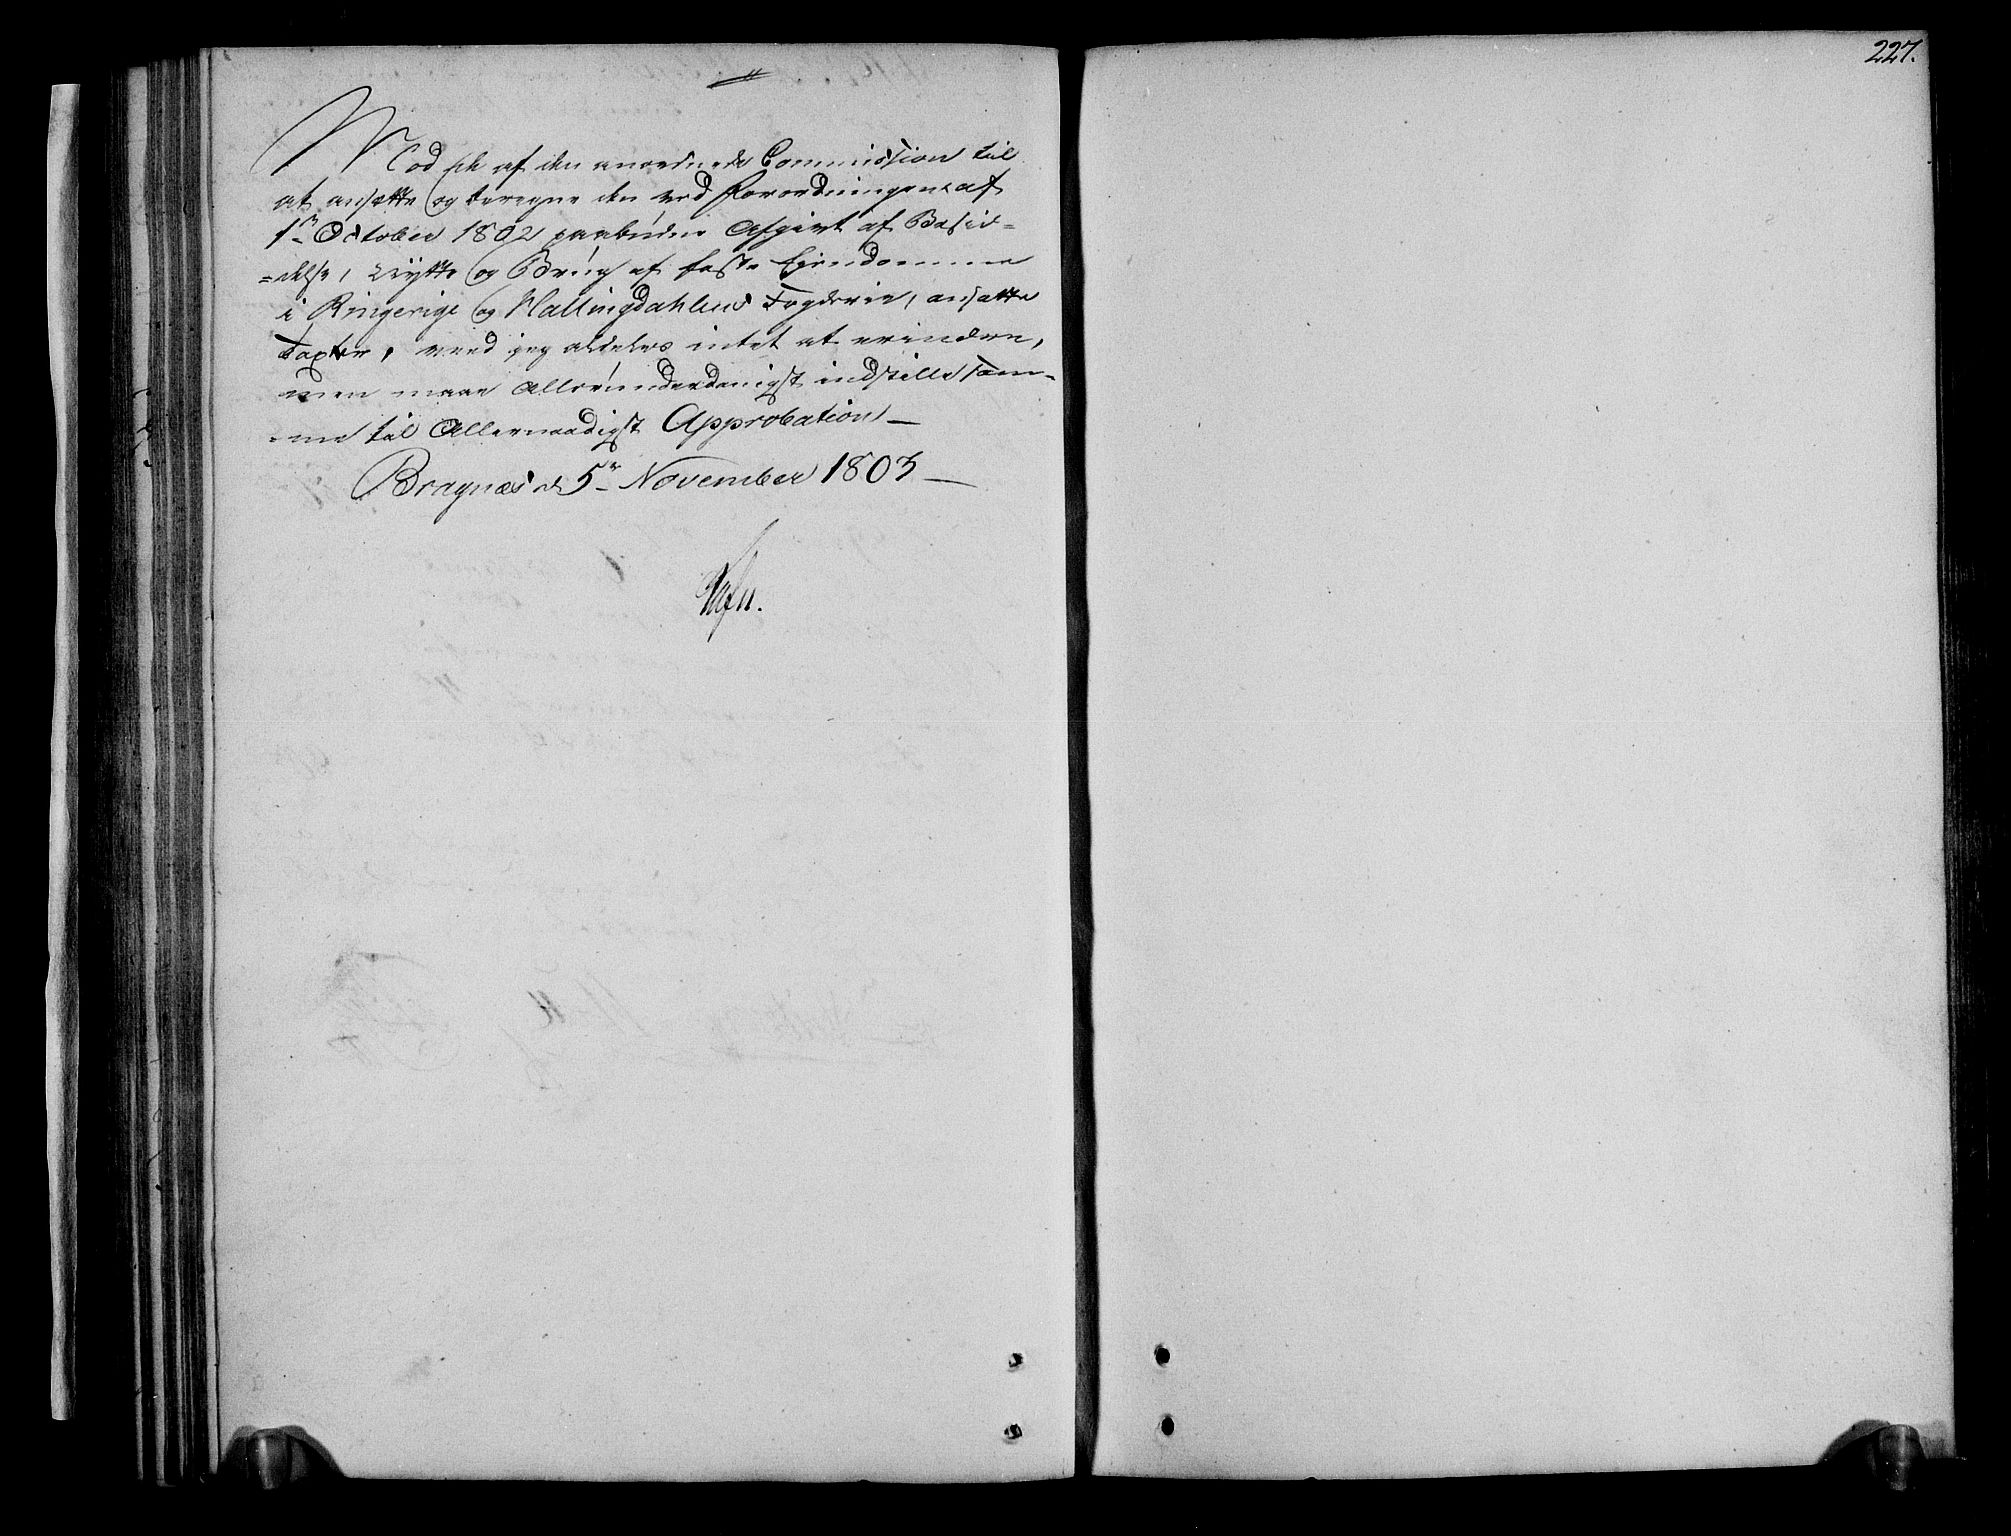 227.
Mod de af den anordnede Commission til
at ansætte og beregne den ved Forordningen af
1ste October 1802 paabudne Afgivt af Besid-
-delse, Nytte og Brug af faste Eiendomme
i Ringerige og Hallingdahlens Fogderie, ansatte
Taxter, veed jeg aldeles intet at erindre,
men maae allerunderdanigst indstille sam-
-me til Allernaadigst Approbation. —
Bragnæs d 5te November 1803 —